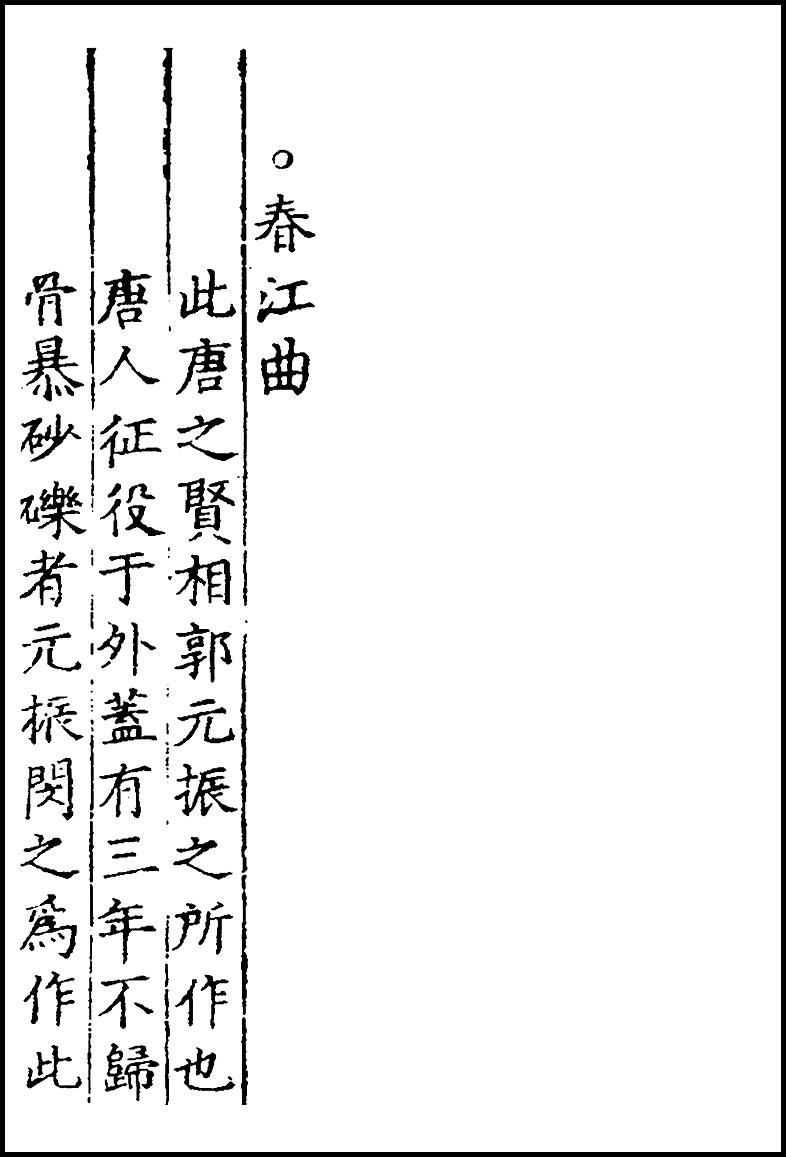 ○春江曲
此唐之賢相郭元振之所作也
唐人征役于外蓋有三年不歸
骨暴砂礫者元振閔之為作此